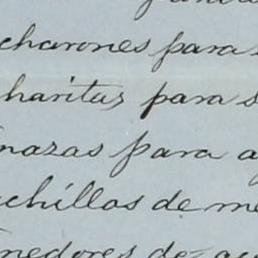 charones para
haritas para s
nazas para a
chillos de me
nedores de